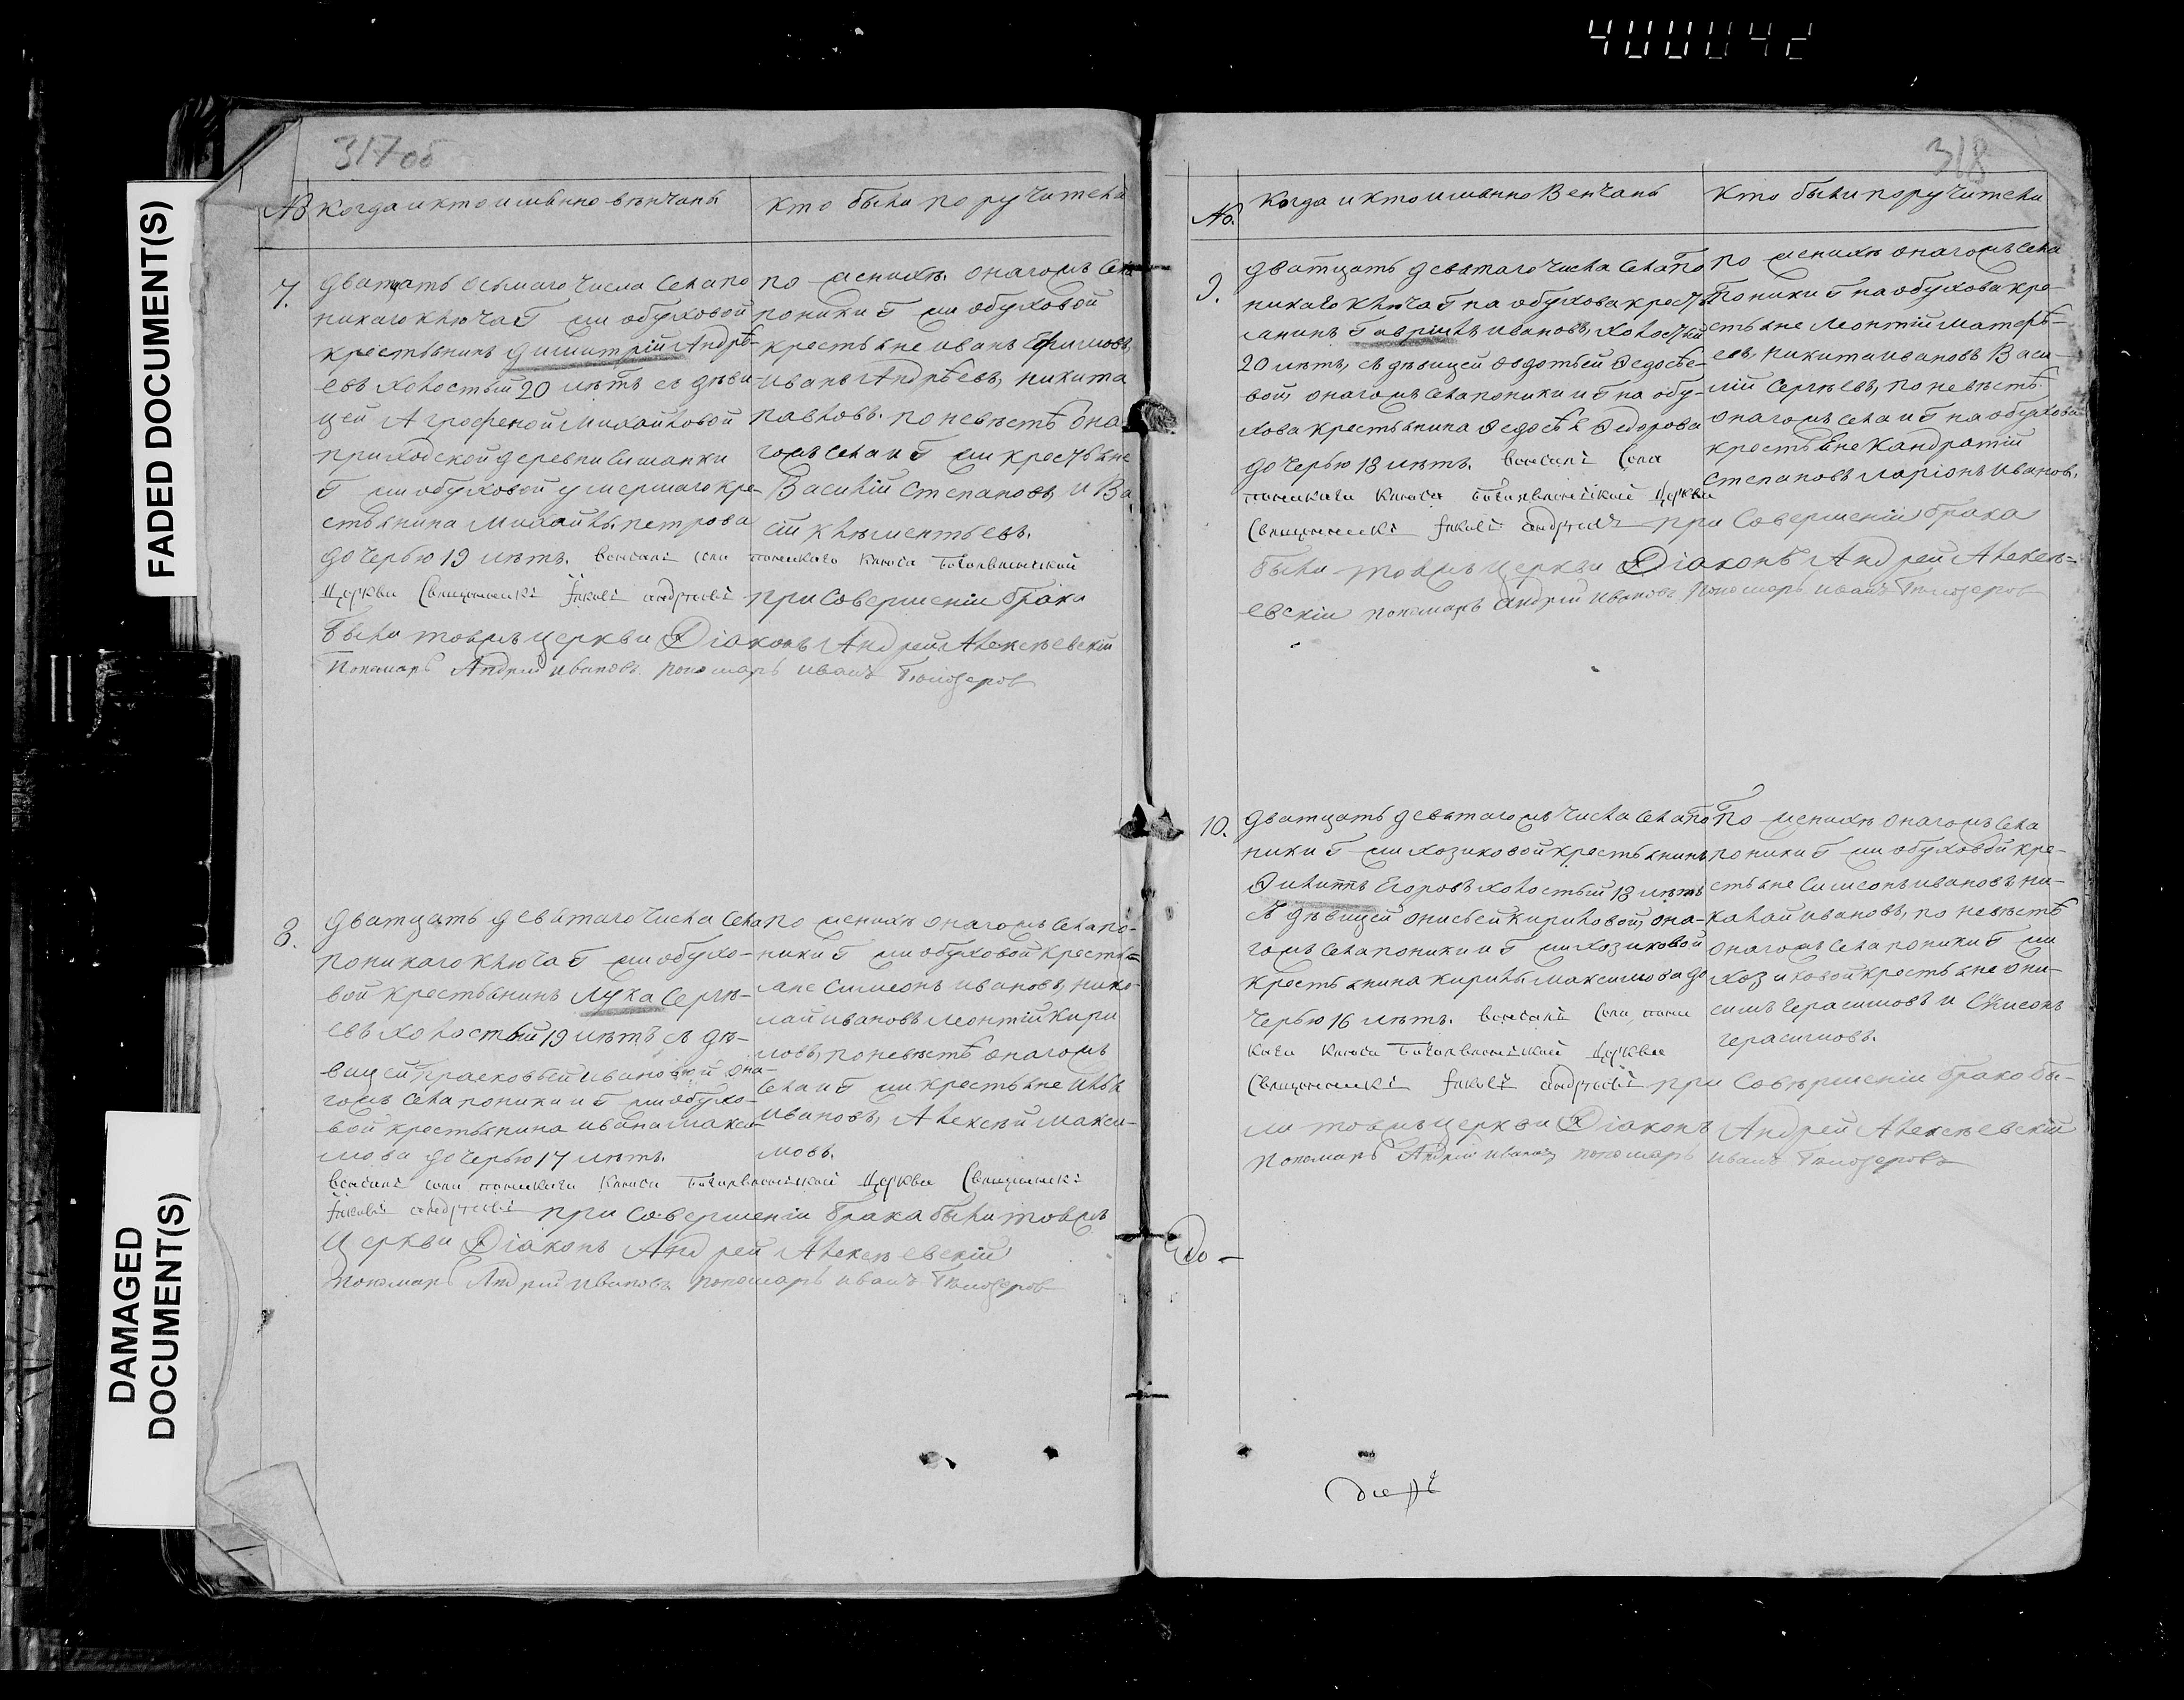 400042
FADED DOCUMENT(S)
DAMAGED DOCUMENT(S)
317об
№ Когда и кто имянно венчаны
Кто были поручители
7.
Дватцать осьмаго числа села по
никаго ключа Г ми обуховой
крестьянинъ Димитрий Андрѣ-
евъ холостый 20 лѣтъ съ дѣви-
цей Агрофеной Михайловой
приходской деревни Симанки
Г ми обуховой умершаго кре-
стьянина Михайлы петрова
дочерью 19 лѣтъ. венчалъ села поникаго ключа Богоявленской
Церкви Священникъ Іаковъ андреевъ при совершеніи брака
были тояжъ церкви Діаконъ Андрей Алексѣевскій
Пономарь Андрей Ивановъ пономарь иванъ
по женихѣ онагожъ села
поники Г ми обуховой
крестьяне иванъ Ефимовъ,
иванъ Андрѣевъ, никита
павловъ. по невѣстѣ она
гожъ села и Г ми крестьяне
Василій Степановъ и Ва
сил Клементьевъ.
8.
Дватцать девятаго числа села
поникаго ключа Г ми обухо-
вой крестьянинъ Лука Сергѣ-
евъ холостый 19 лѣтъ съ дѣ-
вицей Прасковьей ивановой она-
гожъ села поники и Г ми обухо-
вой крестьянина ивана Макси
мова дочерью 17 лѣтъ.
венчалъ села поникаго ключа Богоявленской Церкви Священникъ
Іаковъ андреевъ при совершеніи брака были тояжъ
Церкви Діаконъ Андрей Алексѣевскій
пономарь Андрей Ивановъ пономарь иванъ
по женихѣ онагожъ села по-
ники Г ми обуховой кресть-
яне Симеонъ ивановъ, нико-
лай ивановъ Леонтій Кири
ловъ, по невѣстѣ онагожъ
села и Г ми крестьяне Илья
ивановъ, Алексѣй Макси-
мовъ.
318
№ Когда и кто имянно Венчаны
Кто были поручители
9.
Дватцать девятаго числа села по
никаго ключа Г на обухова кресть
янинъ Гавріилъ ивановъ, холостый
20 лѣтъ, съ дѣвицей Авдотьей Федосѣе-
вой онагожъ села поники и Г на обу-
хова крестьянина Федосѣя Федорова
дочерью 18 лѣтъ. венчалъ села
поникаго ключа Богоявленской Церкви
Священникъ Іаковъ андреевъ при совершеніи брака
были тояжъ церкви Діаконъ Андрей Алексѣ-
евскій пономарь андрей ивановъ пономарь иванъ
по женихѣ онагожъ села
поники Г на обухова кре-
стьяне Леонтій
никита ивановъ Васи-
лій Сергѣевъ, по невѣстѣ
онагожъ села и Г на обухова
крестьяне Кандратій
Степановъ Ларіонъ ивановъ.
10.
Дватцать девятагожъ числа села по
ники Г ми хозиковой крестьянинъ
Филиппъ Егоровъ холостый 18 лѣтъ
съ дѣвицей онисьей кириловой, она-
гожъ села поники и Г ми хозиковой
крестьянина кирилы максимова до
черью 16 лѣтъ. венчалъ села пони
каго ключа Богоявленской Церкви
Священникъ Іаковъ андреевъ при совершеніи брака бы-
ли тояжъ церкви Діаконъ Андрей Алексѣевскій
пономарь Андрей ивановъ пономарь иванъ
По женихѣ онагожъ села
поники Г ми обуховой кре-
стьяне Симеонъ ивановъ ни-
калай ивановъ, по невѣстѣ
онагожъ села поники Г ми
хозиковой крестьяне они-
симъ Герасимовъ и
герасимовъ.